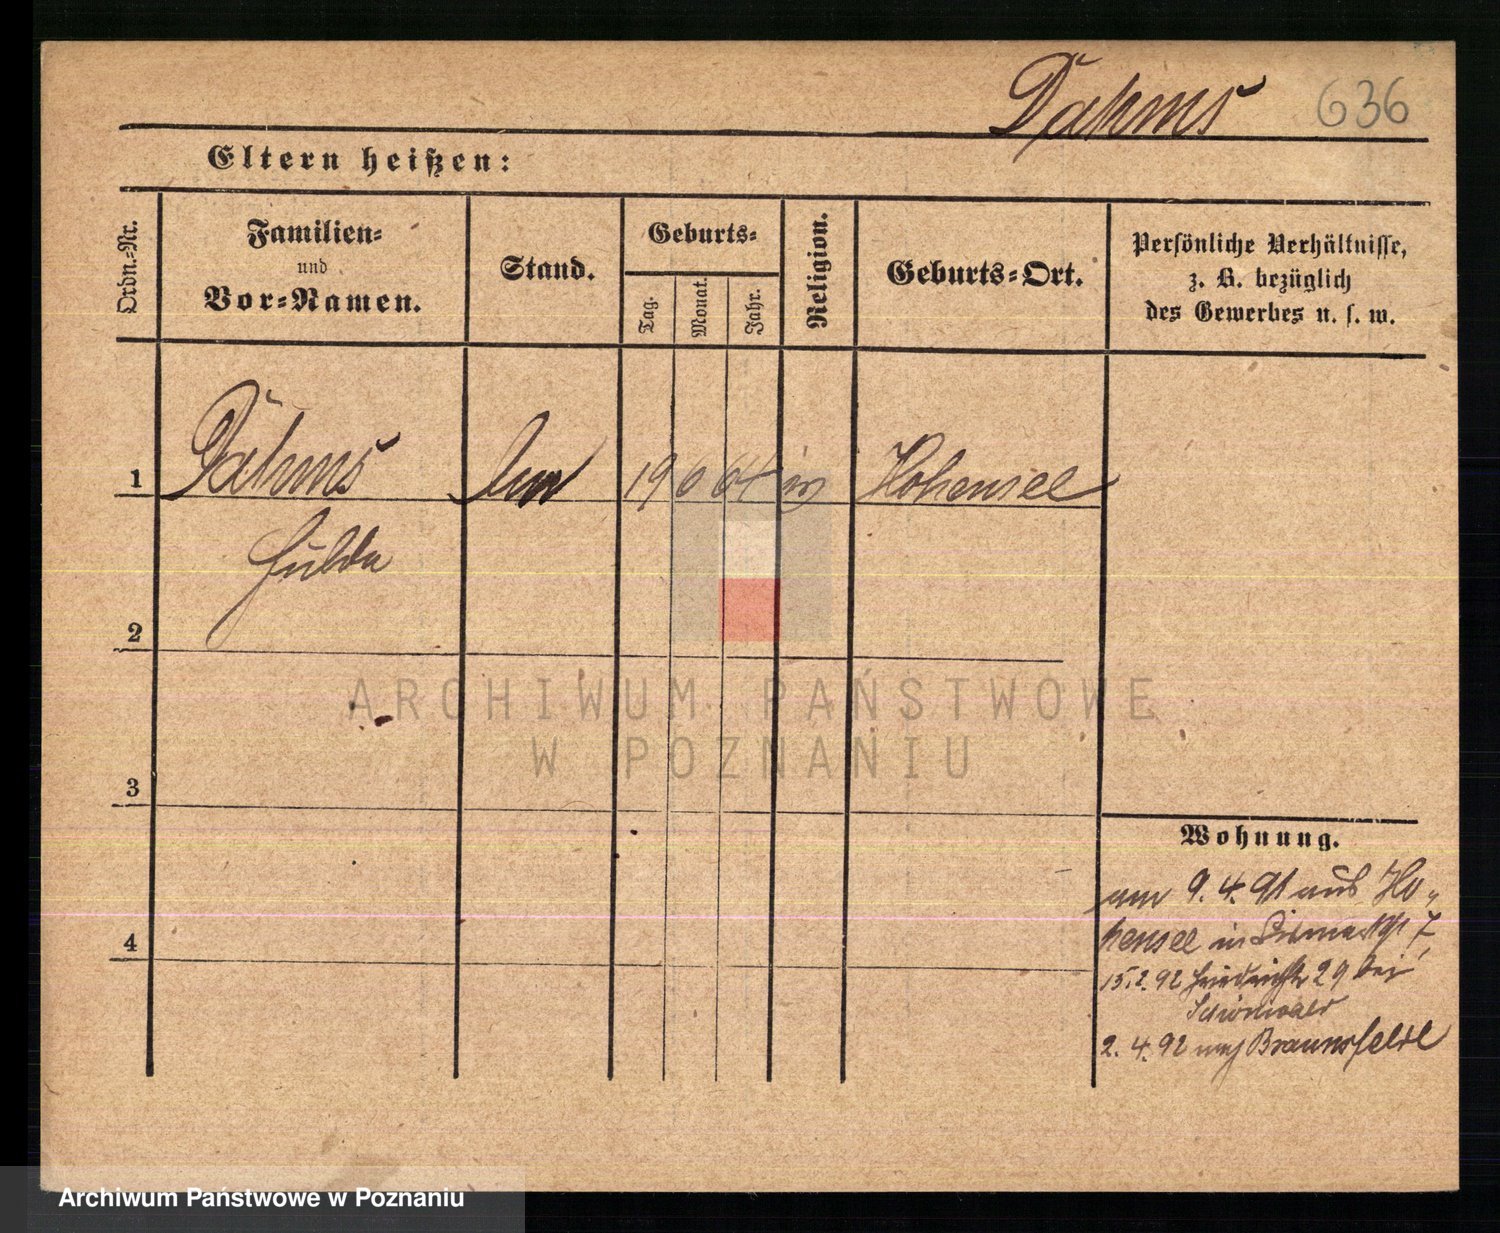 Dahms 636
Eltern heißen:
Ordn.-Nr.
Familien-
und
Vor-Namen.
Stand.
Geburts-
Tag.
Monat.
Jahr.
Religion.
Geburts-Ort.
Persönliche Verhältnisse,
z. B. bezüglich
des Gewerbes u. s. w.
1 Dahms 19 6 64 Hohensee
Hulda
2
3
4
ARCHIWUM PAŃSTWOWE
W POZNANIU
Wohnung.
am 9.4.91 aus Ho-
hensee in 7
15.2.92 Friedrichstr 29 bei
2.4.92 nach Braunsfelde
Archiwum Państwowe w Poznaniu